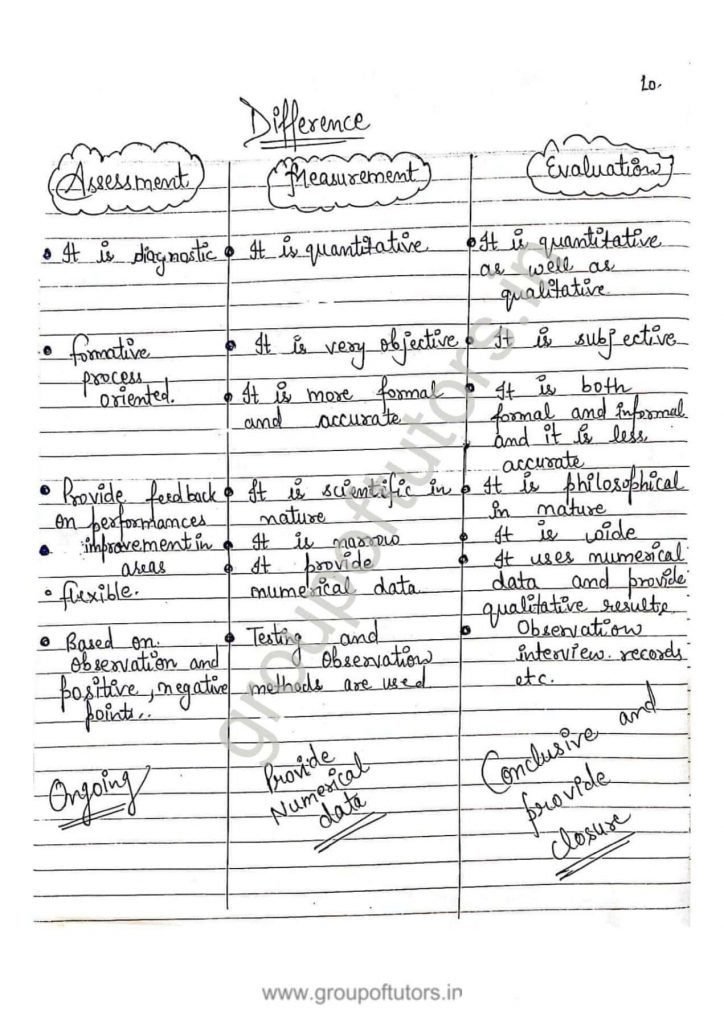 20.
Difference
Assessment
• It is diagnostic
• formative
process
oriented.
• Provide feedback
on performances
• improvement in
areas
• flexible.
• Based on
observation and
positive, negative
points..
Ongoing
Measurement
• It is quantitative
• It is very objective
• It is more formal
and accurate
• It is scientific in
nature
• It is narrow
• It provide
numerical data
• Testing and
observation
methods are used
Provide
Numerical
data
Evaluation
• It is quantitative
as well as
qualitative
• It is subjective
• It is both
formal and informal
and it is less
accurate
• It is philosophical
in nature
• It is wide
• It uses numerical
data and provide
qualitative results.
• Observation
interview. records
etc.
Conclusive and
provide
closure
groupoftutors.in
www.groupoftutors.in